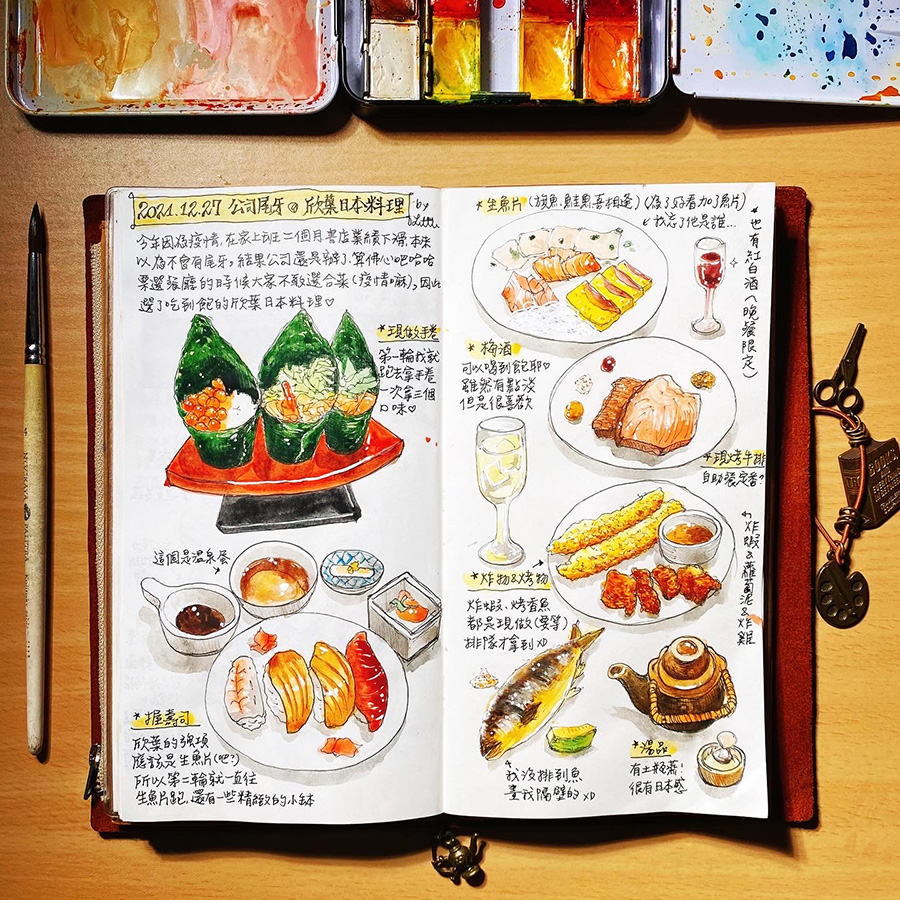 2021.12.27 公司尾牙@欣葉日本料理
by
Little
今年因為疫情,在家上班三個月書店業績下滑,本來
以為不會有尾牙,結果公司還是辦了,算佛心吧哈哈
票選餐廳的時候大家不敢選合菜(疫情嘛),因此
選了吃到飽的欣葉日本料理♡
*現做手卷
第一輪我就
跑去拿手卷
一次拿三個
口味♡
這個是溫泉蛋
*握壽司
欣葉的強項
應該是生魚片(吧?)
所以第二輪就一直往
生魚片跑,還有一些精緻的小缽
*生魚片(旗魚、鮭魚喜相逢)(為了好看加了魚片)
我忘了他是誰...
*也有紅白酒(晚餐限定)
*梅酒
可以喝到飽耶♡
雖然有點淡
但是很喜歡
*現烤牛排
自助餐定番?
炸蝦&蘿蔔泥&炸雞
*炸物&烤物
炸蝦、烤香魚
都是現做(要等)
排隊才拿到XD
我沒排到魚
畫我隔壁的XD
*湯品
有土瓶蒸!
很有日本感
BOOKS